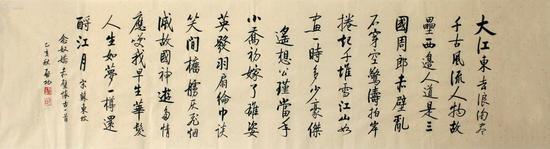 大江东去浪淘尽
千古風流人物故
壘西邊人道是三
國周郎赤壁亂
石穿空驚濤拍岸
捲起千堆雪江山如
畫一時多少豪傑
遙想公瑾當年
小喬初嫁了雄姿
英發羽扇綸巾談
笑間檣艣灰飛烟
滅故國神遊多情
應笑我早生華髮
人生如夢一樽還
酹江月 宋蘇東坡
念奴嬌赤壁懷古一首
乙亥秋啟功